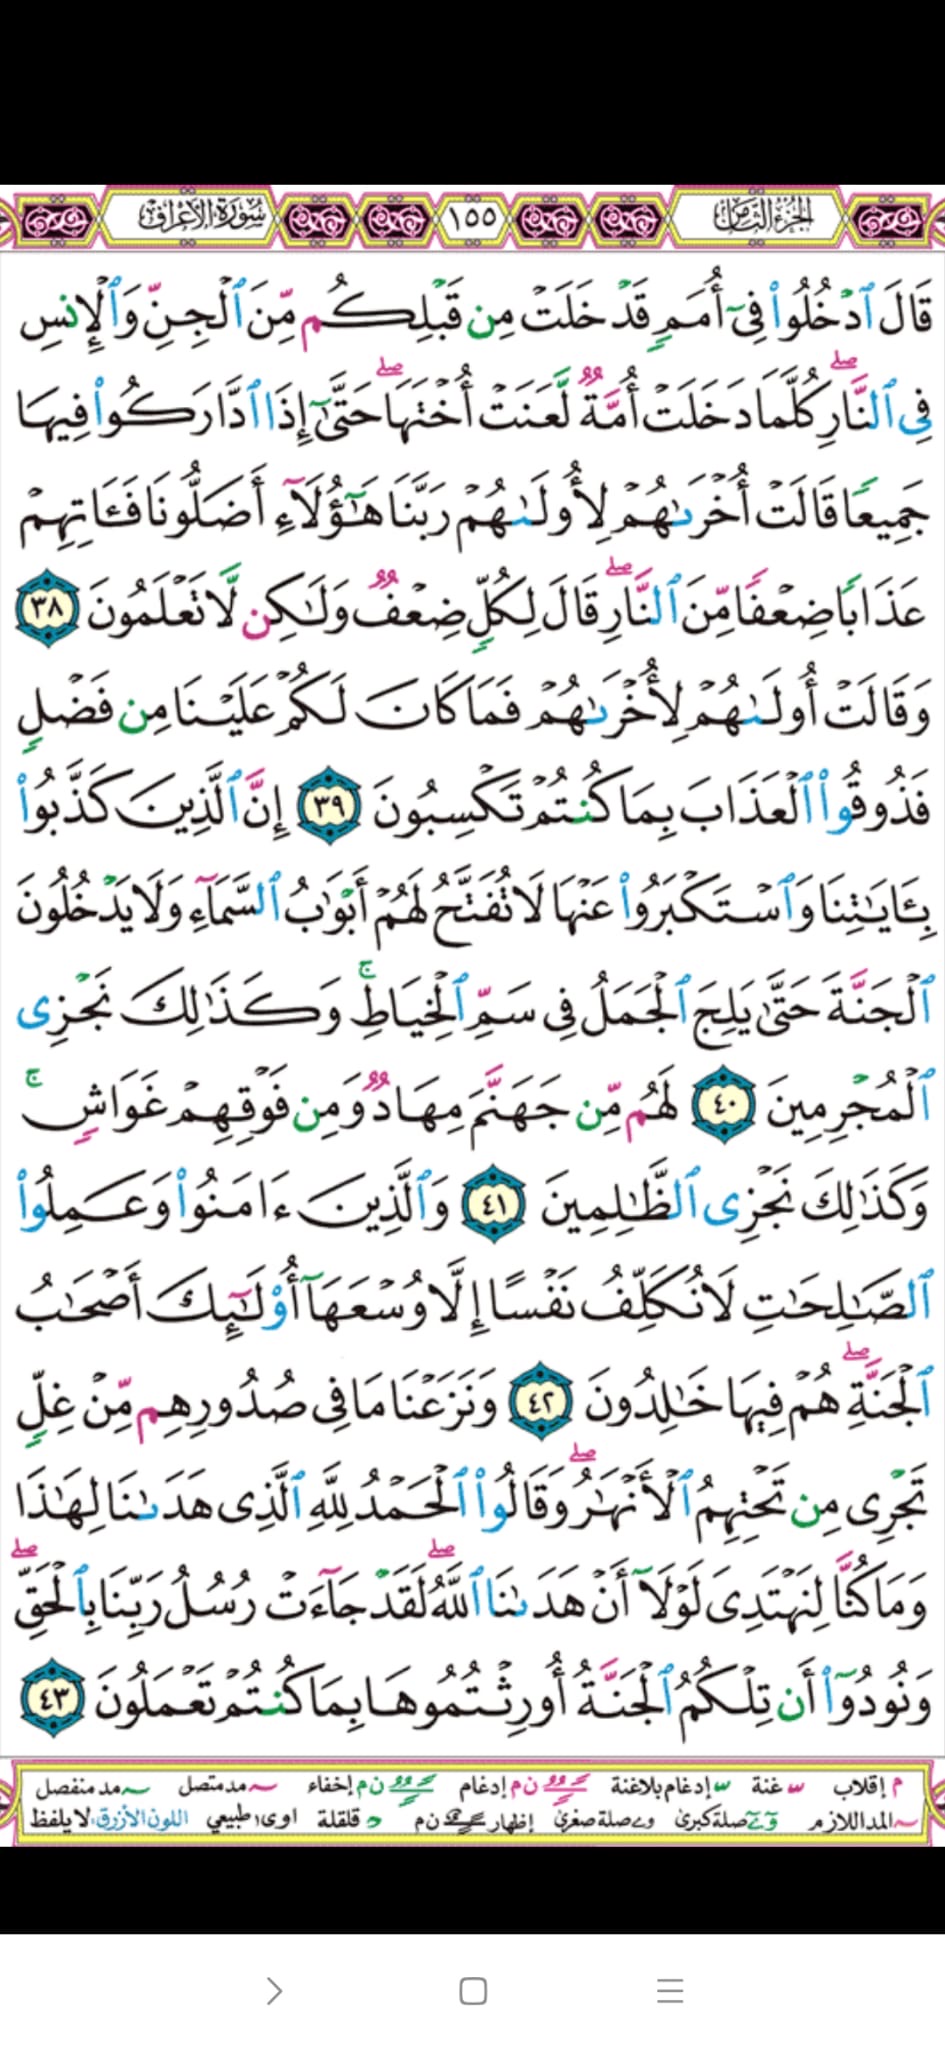 الجزء الثامن ١٥٥ سورة الأعراف
قَالَ ٱدْخُلُوا۟ فِىٓ أُمَمٍ قَدْ خَلَتْ مِن قَبْلِكُم مِّنَ ٱلْجِنِّ وَٱلْإِنسِ
فِى ٱلنَّارِ ۖ كُلَّمَا دَخَلَتْ أُمَّةٌ لَّعَنَتْ أُخْتَهَا ۖ حَتَّىٰٓ إِذَا ٱدَّارَكُوا۟ فِيهَا
جَمِيعًا قَالَتْ أُخْرَىٰهُمْ لِأُولَىٰهُمْ رَبَّنَا هَٰٓؤُلَآءِ أَضَلُّونَا فَـَٔاتِهِمْ
عَذَابًا ضِعْفًا مِّنَ ٱلنَّارِ ۖ قَالَ لِكُلٍّ ضِعْفٌ وَلَٰكِن لَّا تَعْلَمُونَ ٣٨
وَقَالَتْ أُولَىٰهُمْ لِأُخْرَىٰهُمْ فَمَا كَانَ لَكُمْ عَلَيْنَا مِن فَضْلٍ
فَذُوقُوا۟ ٱلْعَذَابَ بِمَا كُنتُمْ تَكْسِبُونَ ٣٩ إِنَّ ٱلَّذِينَ كَذَّبُوا۟
بِـَٔايَٰتِنَا وَٱسْتَكْبَرُوا۟ عَنْهَا لَا تُفَتَّحُ لَهُمْ أَبْوَٰبُ ٱلسَّمَآءِ وَلَا يَدْخُلُونَ
ٱلْجَنَّةَ حَتَّىٰ يَلِجَ ٱلْجَمَلُ فِى سَمِّ ٱلْخِيَاطِ ۚ وَكَذَٰلِكَ نَجْزِى
ٱلْمُجْرِمِينَ ٤٠ لَهُم مِّن جَهَنَّمَ مِهَادٌ وَمِن فَوْقِهِمْ غَوَاشٍ ۚ
وَكَذَٰلِكَ نَجْزِى ٱلظَّٰلِمِينَ ٤١ وَٱلَّذِينَ ءَامَنُوا۟ وَعَمِلُوا۟
ٱلصَّٰلِحَٰتِ لَا نُكَلِّفُ نَفْسًا إِلَّا وُسْعَهَآ أُو۟لَٰٓئِكَ أَصْحَٰبُ
ٱلْجَنَّةِ ۖ هُمْ فِيهَا خَٰلِدُونَ ٤٢ وَنَزَعْنَا مَا فِى صُدُورِهِم مِّنْ غِلٍّ
تَجْرِى مِن تَحْتِهِمُ ٱلْأَنْهَٰرُ ۖ وَقَالُوا۟ ٱلْحَمْدُ لِلَّهِ ٱلَّذِى هَدَىٰنَا لِهَٰذَا
وَمَا كُنَّا لِنَهْتَدِىَ لَوْلَآ أَنْ هَدَىٰنَا ٱللَّهُ ۖ لَقَدْ جَآءَتْ رُسُلُ رَبِّنَا بِٱلْحَقِّ ۖ
وَنُودُوٓا۟ أَن تِلْكُمُ ٱلْجَنَّةُ أُورِثْتُمُوهَا بِمَا كُنتُمْ تَعْمَلُونَ ٤٣
م إقلاب غنة إدغام بلاغنة ن م إدغام ن م إخفاء مد متصل مد منفصل
المد اللازم صلة كبرى و ے صلة صغرى إظهار ن م قلقلة اوى طبيعي اللون الأزرق: لا يلفظ